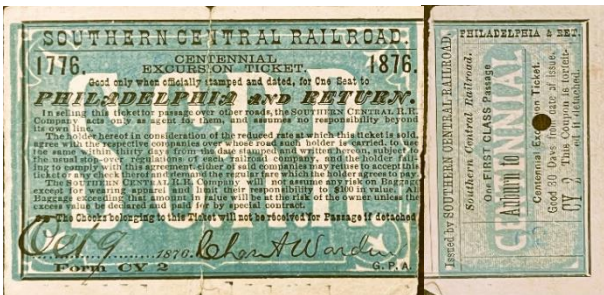 SOUTHERN CENTRAL RAILROAD.
1776. CENTENNIAL 1876.
EXCURSION TICKET.
Good only when officially stamped and dated, for One Seat to
PHILADELPHIA AND RETURN.
In selling this ticket for passage over other roads, the SOUTHERN CENTRAL R.R.
Company acts only as agent for them, and assumes no responsibility beyond
its own line.
The holder hereof in consideration of the reduced rate at which this ticket is sold,
agrees with the respective companies over whose roads such holder is carried, to use
the same within thirty days from the date stamped and written hereon, subject to
the usual stop-over regulations of each railroad company, and the holder fail-
ing to comply with this agreement either of said companies may refuse to accept this
ticket for a passage and demand the regular fare which the holder agrees to pay.
The SOUTHERN CENTRAL R.R. Company will not assume any risk on Baggage
except for wearing apparel and limit their responsibility to $100 in value. All
Baggage exceeding that amount in value will be at the risk of the owner unless the
excess value be declared and paid for by special contract.
The Checks belonging to this Ticket will not be received for Passage if detached
Oct 9 1876. Chas A Warden
Form CY 2 G.P.A.
PHILADELPHIA & RET.
Issued by SOUTHERN CENTRAL RAILROAD.
Southern Central Railroad.
One FIRST CLASS Passage
Auburn to
Centennial Excursion Ticket.
Good 30 Days from date of issue.
CY 2 This Coupon is forfeit-
ed if detached.
CENTENNIAL